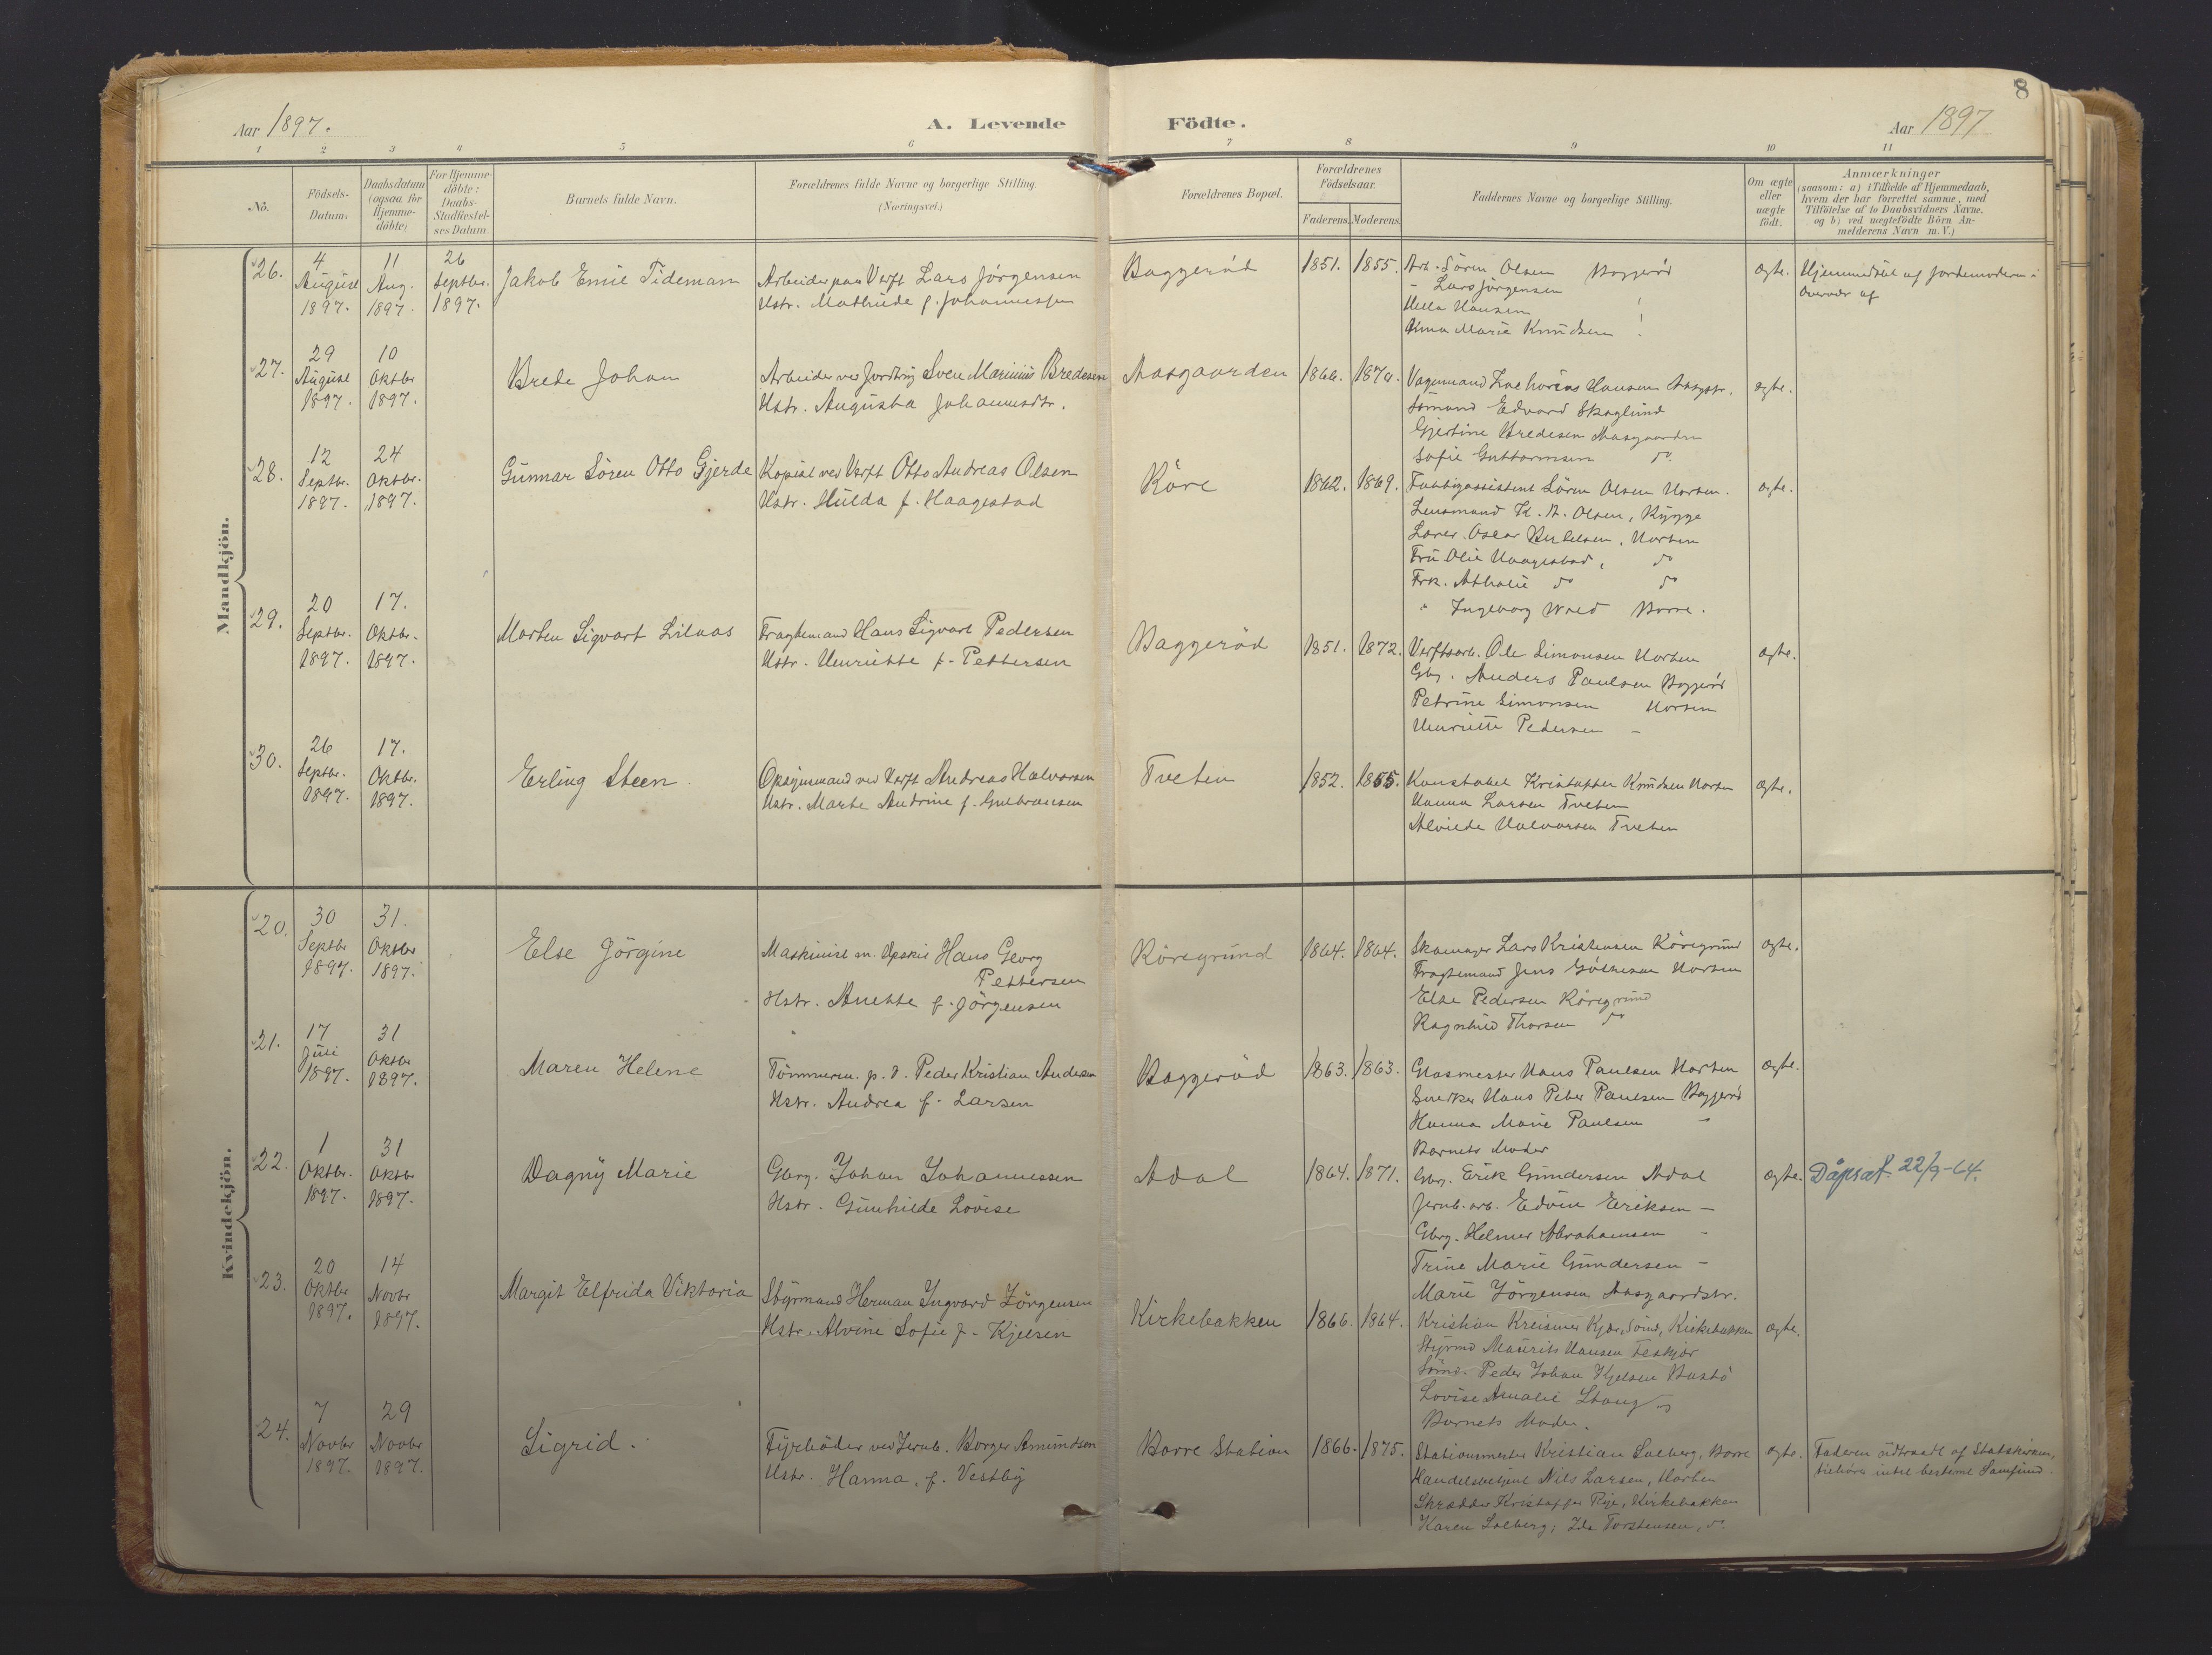 8
Aar 1897.
A. Levende Födte.
Aar 1897
1 2 3 4 5 6 7 8 9 10 11
No.
Födsels-
Datum.
Daabsdatum
(ogsaa for
Hjemme-
döbte)
For Hjemme-
döbte:
Daabs-
Stadfæstel-
ses Datum.
Barnets fulde Navn.
Forældrenes fulde Navne og borgerlige Stilling
(Næringsvei.)
Forældrenes Bopæl.
Forældrenes
Födselsaar.
Faderens. Moderens.
Faddernes Navne og borgerlige Stilling.
Om ægte
eller
uægte
födt.
Anmærkninger
(saasom: a) i Tilfælde af Hjemmedaab,
hvem der har forrettet samme, med
Tilföielse af to Daabsvidners Navne.
og b) ved uægtefödte Börn An-
melderens Navn m. V.)
Mandkjön.
26.
4
August
1897.
11
Aug.
1897.
26
Septbr.
1897.
Jakob Emil Tidemann
Arbeider paa Verft Lars Jörgensen
Hstr. Mathilde f. Johannessen
Baggeröd
1851. 1855.
Arb. Sören Olsen Baggeröd
- Lars Jörgensen
Hella Hansen
Anna Marie Knudsen
ægte.
Hjemmedöbt af Jordemoderen i
Overvær af
27.
29
August
1897.
10
Oktbr
1897.
Brede Johan
Arbeider ved Sven Marinius Bredesen
Hstr. Augusta Johannesdtr.
Aasgaarden
1866. 1870.
Vognmand Zacharias Hansen Aasgstr.
Sömand Edvard Skoglund
Gjertine Bredesen Aasgaarden
Sofie Guttormsen do.
ægte.
28.
12
Septbr.
1897.
24
Oktbr.
1897.
Gunnar Sören Otto Gjerde
Kopist ved Verft Otto Andreas Olsen
Hstr. Hulda f. Haagestad
Röre
1862. 1869.
Sören Olsen Horten.
Lensmand K. A. Olsen, Rygge
Lærer Oscar Horten
Fru Olie Haagestad, do
Frk. Athalie do do
" Ingeborg Wold Borre.
ægte.
29.
20
Septbr.
1897.
17.
Oktbr.
1897.
Morten Sigvart Lilaas
Fragtemand Hans Sigvart Pedersen
Hstr. Henriette f. Pettersen
Baggeröd
1851. 1872.
Verftsarb. Ole Simonsen Horten
Gbr. Anders Paulsen Baggeröd
Petrine Simonsen Horten
Henriette Pedersen -
ægte.
30.
26
Septbr.
1897.
17.
Oktbr.
1897.
Erling Steen
Opsynsmand ved Verft Andreas Halvorsen
Hstr. Marte Andrine f. Gulbransen
Tveten
1852. 1855.
Konstabel Kristoffer Knudsen Horten
Hanna Larsen Tveten
Alvilde Halvorsen Tveten
ægte.
Kvindekjön.
20.
30
Septbr
1897.
31.
Oktbr
1897.
Else Jörgine
Maskinist m. Hans Georg
Pettersen
Hstr. Anette f. Jörgensen
Röregrund
1864. 1864.
Skomager Lars Kristensen Röregrund
Fragtemand Jens Horten
Else Pedersen Röregrund
Ragnhild Thorsen do
ægte.
21.
17
Juli
1897.
31
Oktbr
1897.
Maren Helene
Tömmerm. p. V. Peder Kristian Andersen
Hstr. Andrea f. Larsen
Baggeröd
1863. 1863.
Glasmester Hans Paulsen Horten
Snedker Hans Peter Paulsen Baggeröd
Hanna Marie Paulsen -
Barnets Moder
ægte.
22.
1
Oktbr.
1897.
31
Oktbr
1897.
Dagny Marie
Gbrg. Johan Johannessen
Hstr. Gunhilde Lovise
Adal
1864. 1871.
Gbrg. Erik Gundersen Adal
Jernb. arb. Edvin Eriksen -
Gbrg. Helmer Abrahamsen -
Trine Marie Gundersen -
Marie Jörgensen Aasgaardstr.
ægte.
Dåpsat. 22/9-64.
23.
20
Oktbr
1897.
14
Novbr
1897.
Margit Elfrida Viktoria
Styrmand Herman Ingvard Jörgensen
Hstr. Alvine Sofie f. Kjelsen
Kirkebakken
1866. 1864.
Kristian Kirkebakken
Styrmd Maurits Hansen Feskjær
Sömd. Peder Johan Kjelsen Bastö
Lovise Amalie Stang
Barnets Moder.
ægte.
24.
7
Novbr
1897.
29
Novbr
1897.
Sigrid.
Fyrböder ved Jernb. Borger Amundsen
Hstr. Hanna, f. Vestby
Borre Station
1866. 1875.
Stationsmester Kristian Solberg, Borre
Handelsbetjent Nils Larsen, Horten
Skrædder Kristoffer Rye, Kirkebakken
Karen Solberg, Ida Torstensen, do.
ægte.
Faderen udtraadt af Statskirken,
tilhörer intet bestemt Samfund.